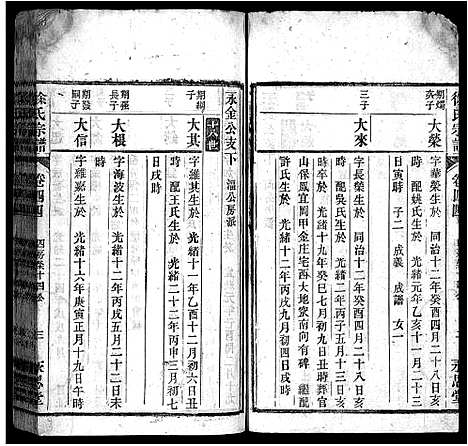 徐氏宗譜
卷四四
朝燦次子
大榮
字華榮生於 同治十二年癸酉四月二十八日亥
時 配姚氏生於 光緒元年乙亥十二月十三
日寅時 子二 成義 成譜 女一
三子
大來
字長榮生於 同治十二年癸酉四月二十八日亥
時 配吳氏生於 光緒元年乙亥十一月十八日
時卒於 光緒十九年癸巳七月初九日丑時葬官
山保鳳宜閣甲金庄宅西大地冢南向有碑 繼配
許氏生於 光緒十二年丙戌八月初四日戌時
永金公支下
溫公房派
十八世
朝綱子
大其
字維其生於 光緒十一年乙酉十二月初六日丑
時 配王氏生於 光緒二十二年丙申三月初七
日戌時
朝強長子
大根
字海波生於 光緒十二年丙戌五月二十二日未
時
朝發嗣子
大信
字維嘉生於 光緒十六年庚寅正月十九日午時
徐氏宗譜
卷四四
三
永思堂